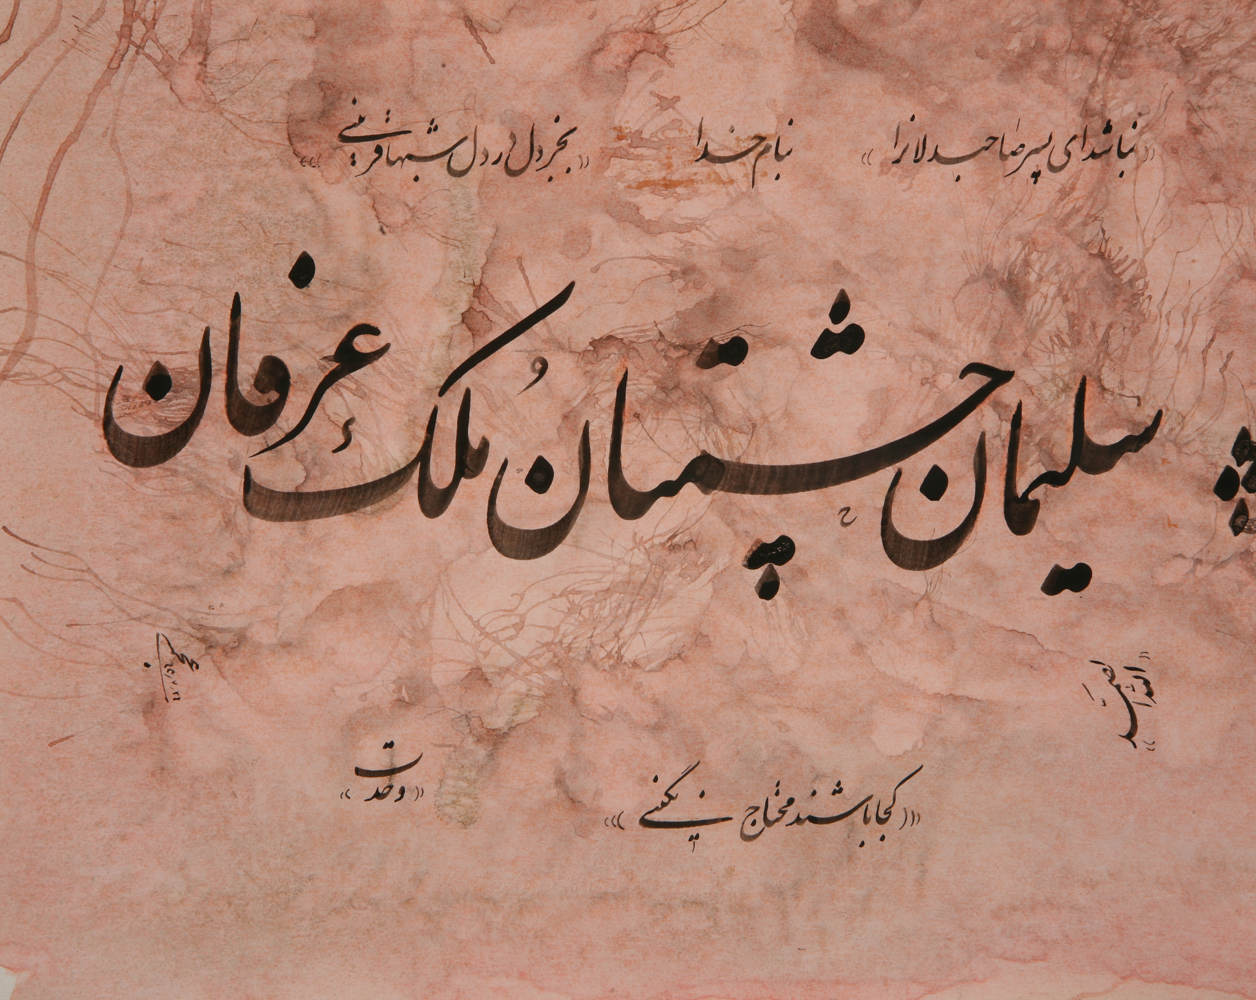 «نباشد ای پسر صاحبدلان را» بنام خدا «بجز دل در دل شبها قرینی»
سلیمان حشمتان ملک عرفان
«الله اصمد»
«کجا باشند محتاج نگینی»
«وحدت»